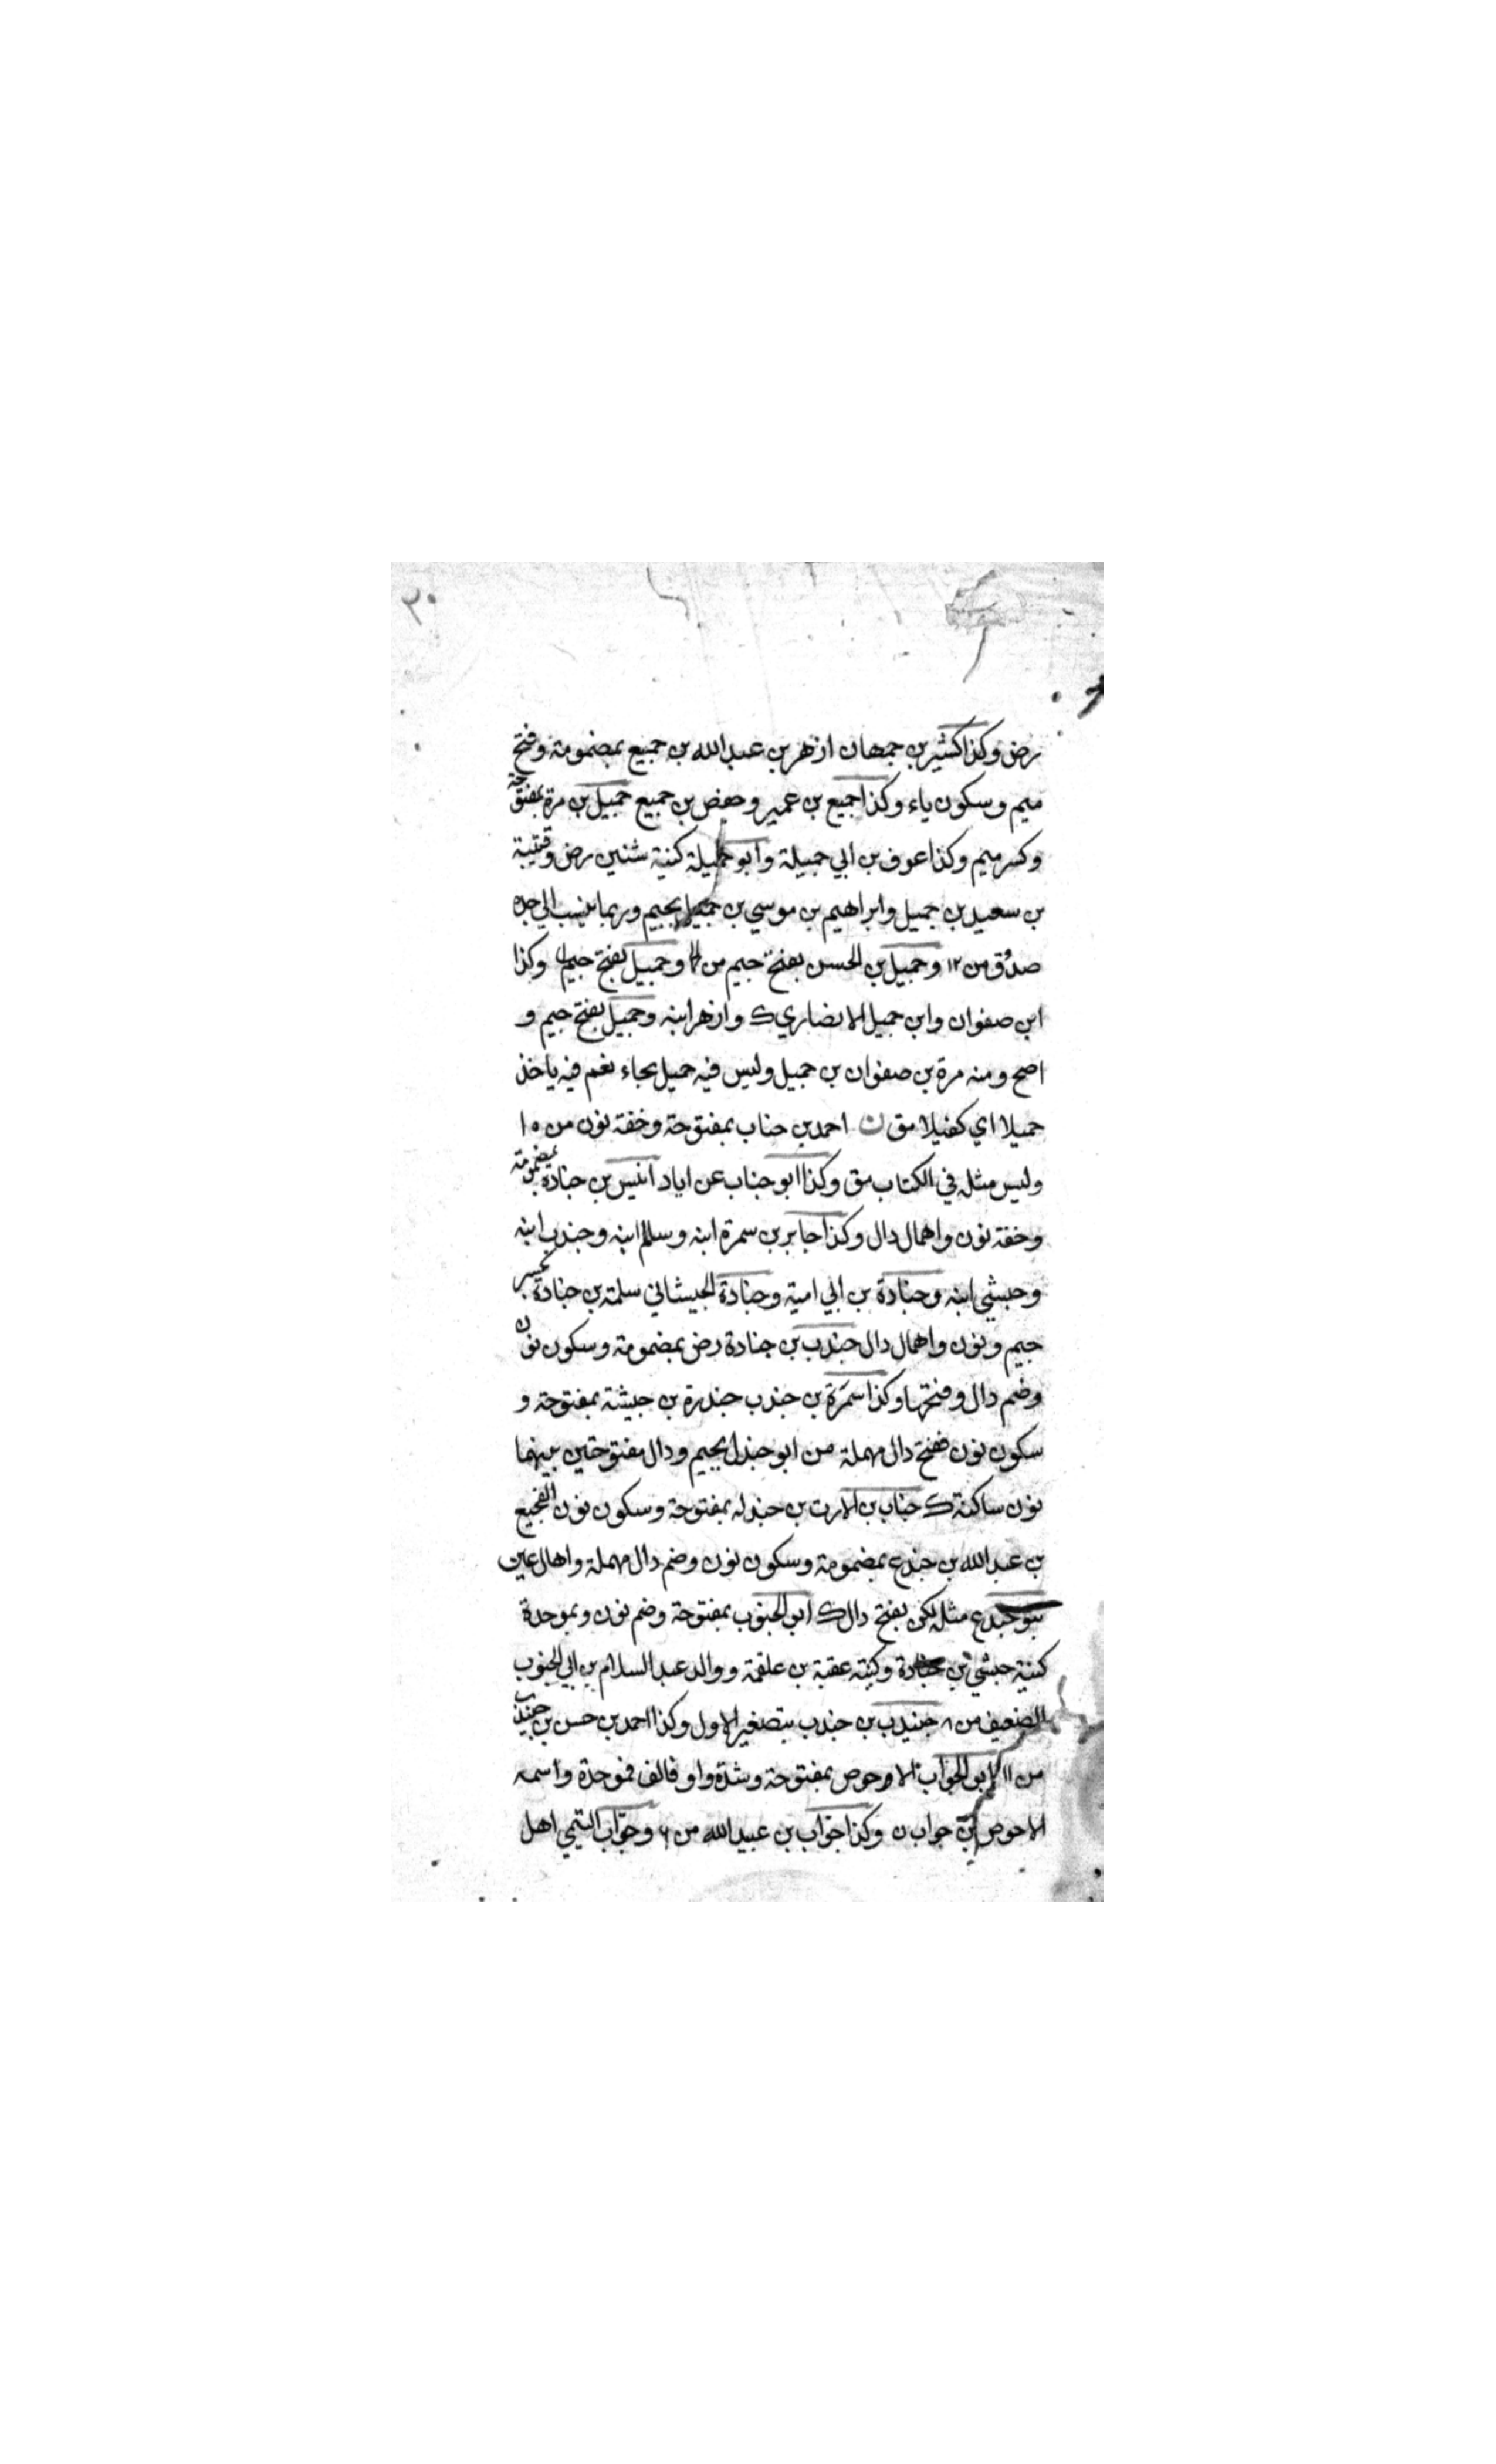 ٢٠
رض وكذا كثير بن جمهان ازهر بن عبد الله بن جميع بمضمومة وفتح
ميم وسكون ياء وكذا جميع بن عمير وحفص بن جميع جميل بن مرة بمفتوحة
وكسر ميم وكذا عوف بن ابي جميلة وابو جميلة كنية سنين رض وقتيبة
بن سعيد بن جميل وابراهيم بن موسي بن جميل بجيم وربما ينسب الي جده
صدوق من ١٢ وجميل بن الحسن بفتح جيم من وجميل بفتح جيم وكذا
ابن صفوان وابن جميل الانصاري ك وازهر ابنه وجميل بفتح جيم و
اصح ومنه مرة بن صفوان بن جميل وليس فيه حميل بحاء نعم فيه ياخذ
حميلا اي كفيلا مق ن احمد بن جناب بمفتوحة وخفة نون من ١٠
وليس مثله في الكتاب مق وكذا ابو جناب عن اياد انيس بن جنادة بمضمومة
وخفة نون واهمال دال وكذا جابر بن سمرة ابنه وسالم ابنه وجندب ابنه
وحبشي ابنه وجنادة بن ابي امية وجنادة الجيشاني سلمة بن جنادة بكسر
جيم ونون واهمال دال جندب بن جنادة رض بمضمومة وسكون نون
وضم دال وفتحها وكذا سمرة بن جندب جندرة بن خيشنة بمفتوحة و
سكون نون ففتح دال مهملة من ابو جندل بجيم ودال مفتوحتين بينهما
نون ساكنة ك خباب بن الارت بن جندله بمفتوحة وسكون نون الفجيع
بن عبد الله بن جندع بمضمومة وسكون نون وضم دال مهملة واهمال عين
بنو جندع مثله لكن بفتح دال ك ابو الجنوب بمفتوحة وضم نون وبموحدة
كنية حبشي بن جنادة وكنية عقبة بن علقمة ووالد عبد السلام بن ابي الجنوب
الضعيف من ٨ جنيدب بن جندب بتصغير الاول وكذا احمد بن حسن بن جنيدب
من ١١ ابو الجواب الاوحوص بمفتوحة وشدة واو فالف فموحدة واسمه
الاحوص بن جواب ن وكذا جواب بن عبيد الله من ٦ وجواب التيمي اهل